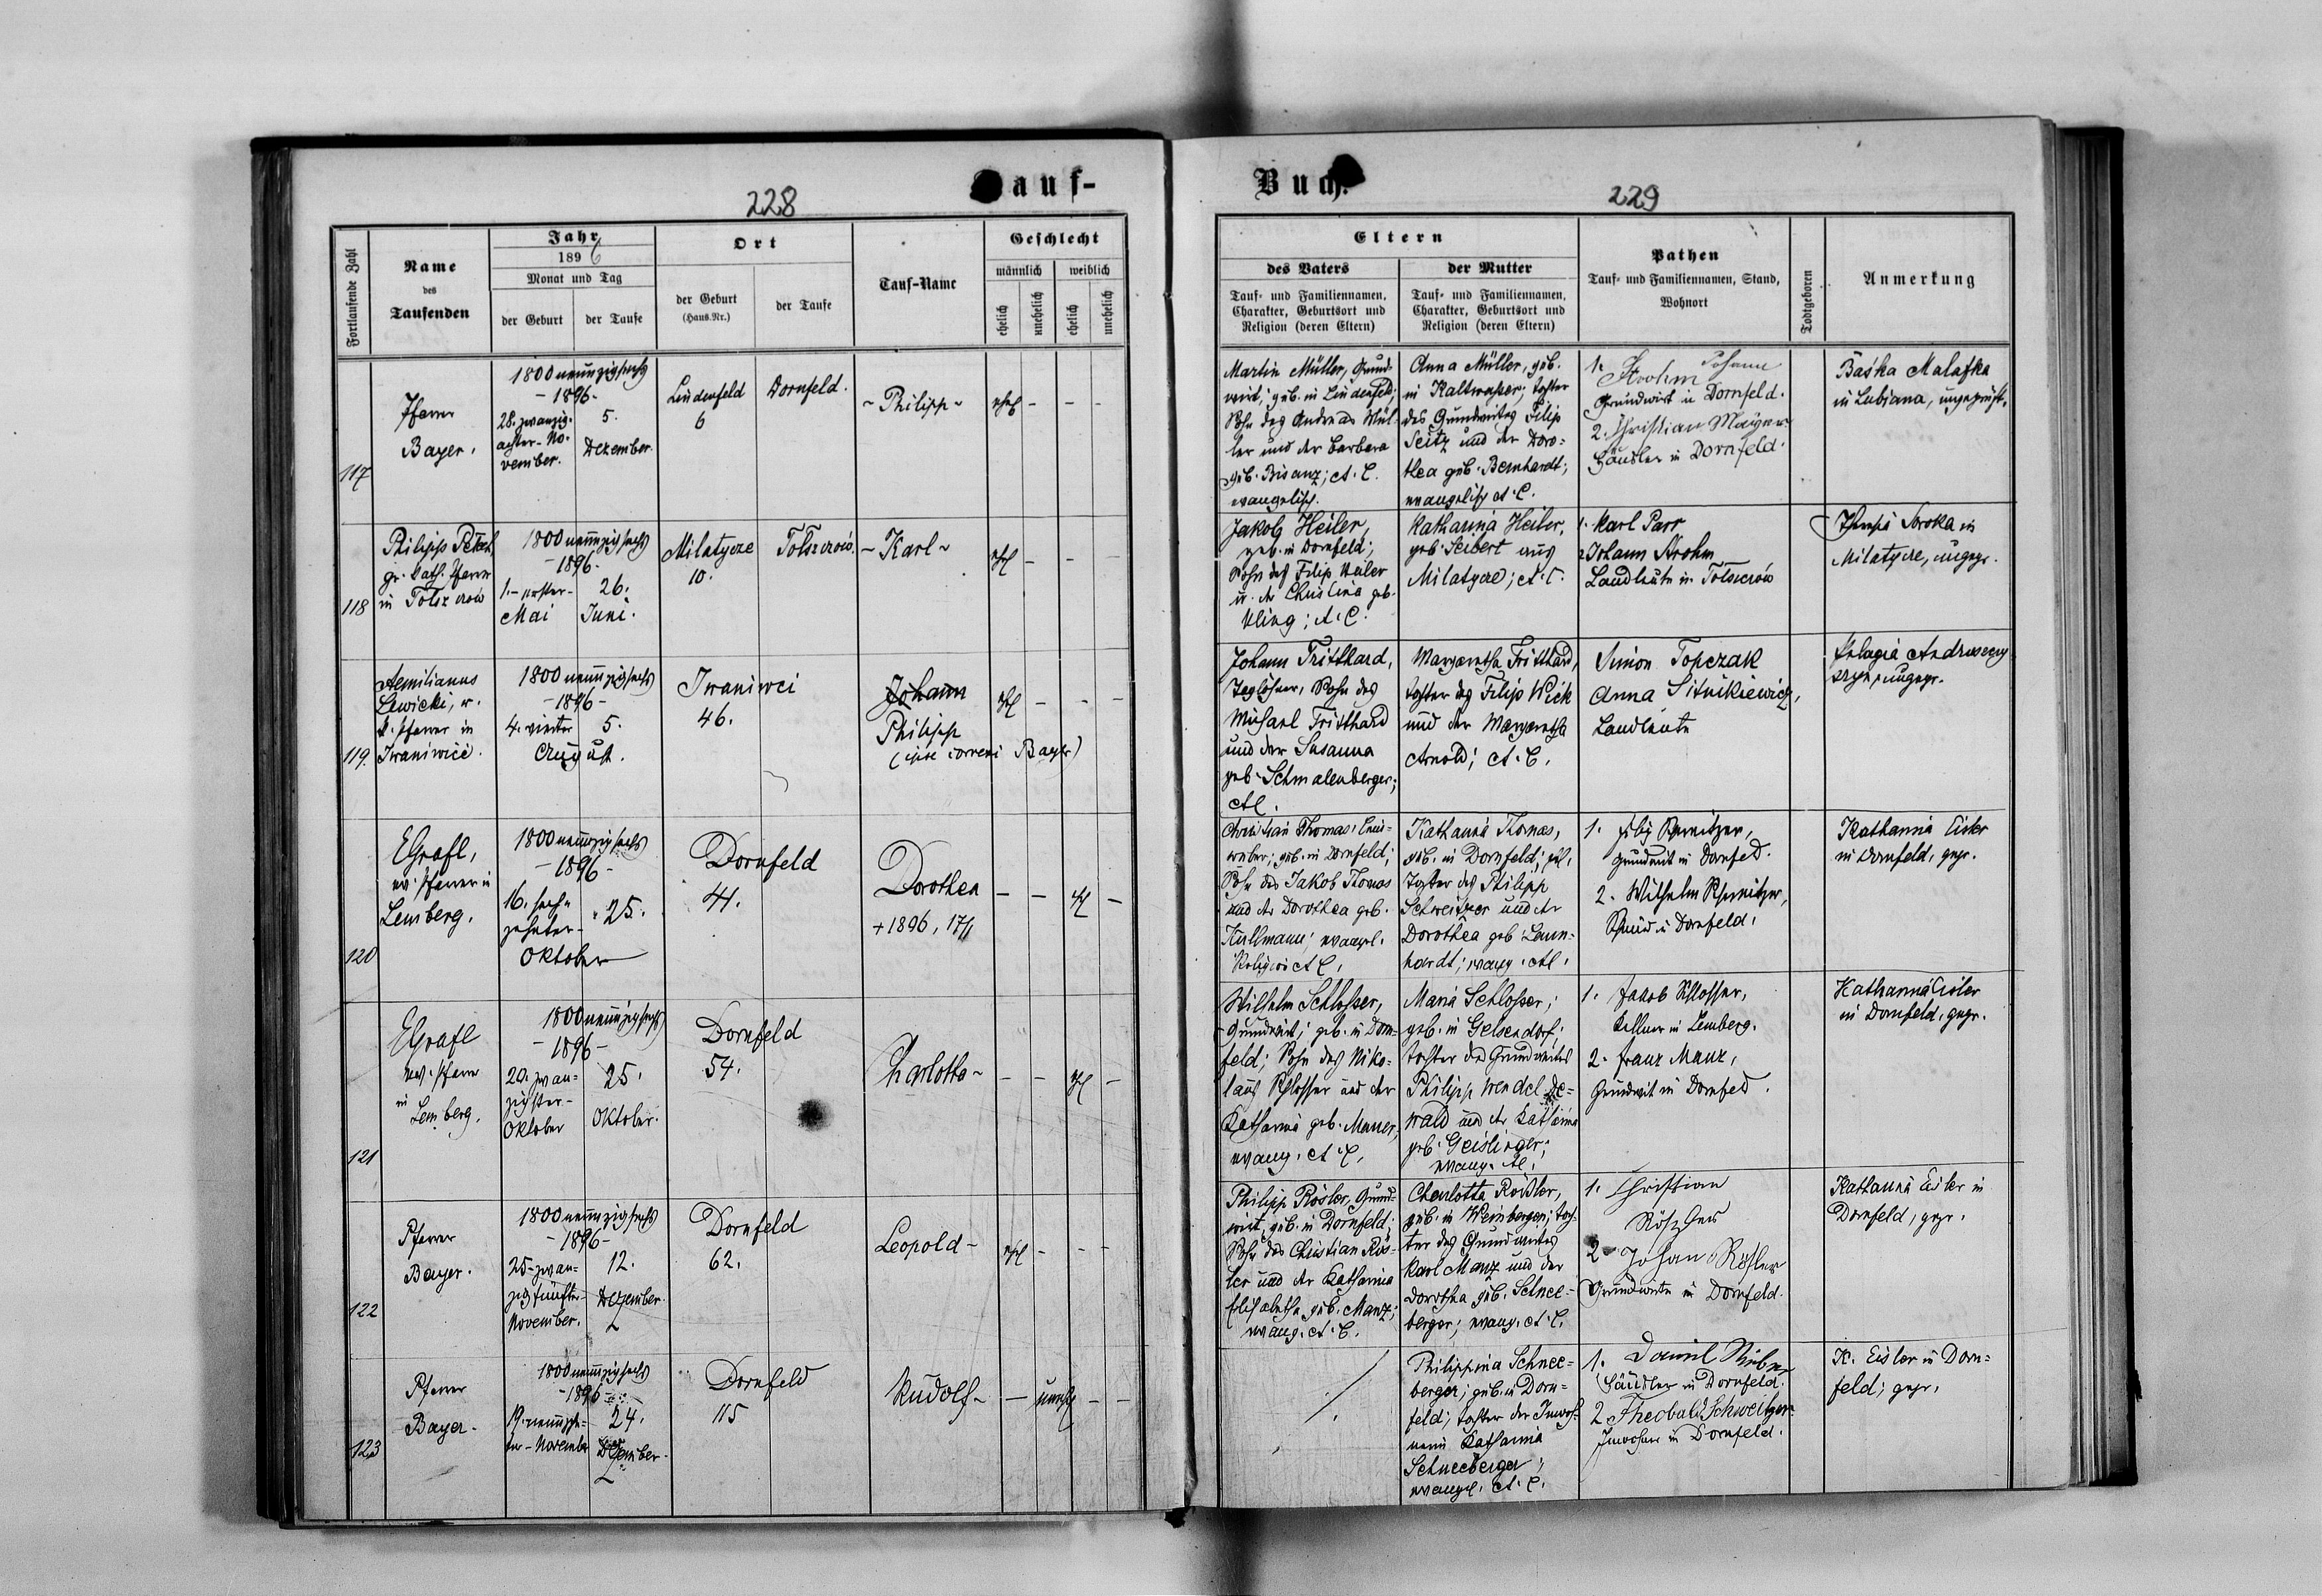 228
auf-
Buch.
229
Fortlaufende Zahl
Name
des
Taufenden
Jahr
1896
Monat und Tag
der Geburt
der Taufe
Ort
der Geburt
(Haus-Nr.)
der Taufe
Tauf-Name
Geschlecht
männlich
weiblich
ehelich
unehelich
ehelich
unehelich
Eltern
des Vaters
Tauf- und Familiennamen,
Charakter, Geburtsort und
Religion (deren Eltern)
der Mutter
Tauf- und Familiennamen,
Charakter, Geburtsort und
Religion (deren Eltern)
Pathen
Tauf- und Familiennamen, Stand,
Wohnort
Todtgeboren
Anmerkung
117
Pfarrer
Bayer.
1800 neunzigsechs
- 1896 -
28. zwanzig-
achter - No-
vember.
5.
Dezember.
Lindenfeld
6
Dornfeld.
- Philipp -
ehel
- - -
Martin Müller, Grund-
wirt; geb. in Lindenfeld;
Sohn des Andreas Mül-
ler und der Barbara
geb. Bisanz; A. C.
evangelisch.
Anna Müller, geb.
in Kaltwasser; Tochter
des Grundwirtes Filip
Seitz und der Doro-
thea geb. Bernhardt;
evangelisch A. C.
1. Johann
Strohm
Grundwirt in Dornfeld.
2. Christian Mayer
Häusler in Dornfeld.
Baśka Malafka
in Lubiana, ungeprüft.
118
Philipp
gr. kath. Pfarrer
in Tolszczów
1800 neunzigsechs
- 1896 -
1. - erster -
Mai
26.
Juni.
Milatycze
10.
Tolszczów.
- Karl -
ehel
- - -
Jakob Heiler,
geb. in Dornfeld;
Sohn des Filip Heiler
u. der Christina geb.
Kling; A. C.
Katharina Heiler,
geb. Seibert aus
Milatycze; A. C.
1. Karl Parr
2. Johann Strohm
Landleute in Tolszczów
Soroka in
Milatycze, ungepr.
119.
Aemilianus
Lewicki, r.
k. Pfarrer in
Iwaniwici.
1800 neunzigsechs
- 1896 -
4. vierter
5.
August.
Iwaniwci
46.
Johann
Philipp
(ipse correxi Bayer)
ehel
- - -
Johann Tritthard,
Taglöhner, Sohn des
Michael Tritthard
und der Susanna
geb. Schmalenberger;
A C.
Margaretha Tritthard,
Tochter des Filip Wick
und der Margaretha
Arnold; A. C.
Simon Topczak
Anna Sitnikiewicz,
Landleute
Pelagia
ungepr.
120
EGrafl,
ev. Pfarrer in
Lemberg.
1800 neunzigsechs
- 1896 -
16. sech-
zehnter -
25.
Oktober
Dornfeld
41.
Dorothea
+ 1896, 17/
- -
ehel
-
Christian Thomas,
geb. in Dornfeld;
Sohn des Jakob Thomas
und der Dorothea geb.
Kullmann; evangel.
Religion A C.
Katharina Thomas,
geb. in Dornfeld;
Tochter des Philipp
Schweitzer und der
Dorothea geb. Laun-
hardt; evang. A C.
1. Filip Schweitzer,
Grundwirt in Dornfed.
2. Wilhelm Schweitzer,
Schmied in Dornfeld.
Katharina Eisler
in Dornfeld, gepr.
121
EGrafl
ev. Pfarrer
in
Lemberg.
1800 neunzigsechs
- 1896 -
20. zwan-
zigster -
Oktober
25.
Oktober.
Dornfeld
54.
Charlotte -
- -
ehel
-
Wilhelm Schlosser,
Grundwirt; geb. in Dorn-
feld; Sohn des Niko-
laus Schlosser und der
Katharina geb. Maurer,
evang. A. C.
Maria Schlosser;
geb. in Gelsendorf;
Tochter des Grundwirtes
Philipp Wendel De-
wald und der Katharina
geb. Geislinger;
evang. A C.
1. Jakob Schlosser,
Kellner in Lemberg.
2. Franz Manz,
Grundwirt in Dornfed.
Katharina Eisler
in Dornfeld, gepr.
122
Pfarrer
Bayer.
1800 neunzigsechs
- 1896 -
25 - zwan-
zigfünfter -
November.
12.
Dezember.
Dornfeld
62.
Leopold -
ehel
- - -
Philipp Rösler, Grund-
wirt, geb. in Dornfeld;
Sohn des Christian Rös-
ler und der Katharina
Elisabetha geb. Manz;
evang. A. C.
Charlotta Rößler,
geb. in Weinbergen; Toch-
ter des Grundwirtes
Karl Manz und der
Dorothea geb. Schnee-
berger; evang. A. C.
1. Christian
2. Johan Rösler
Grundwirte in Dornfeld.
Katharina Eisler in
Dornfeld, gepr.
123
Pfarrer
Bayer.
1800 neunzigsechs
- 1896 -
19. neunzehn-
ter - November
24.
Dezember.
Dornfeld
115
Rudolf -
-
unehel
- -
Philippina Schnee-
berger; geb. in Dorn-
feld; Tochter der Inwoh-
nerin Katharina
Schneeberger;
evangel. A. C.
1. Daniel
Häusler in Dornfeld.
2. Theobald Schweitzer
Inwohner in Dornfeld.
K. Eisler in Dorn-
feld; gepr.